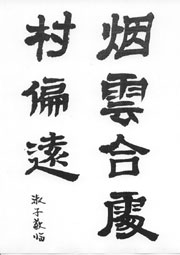 烟雲合處
村偏遠
淑子敬臨